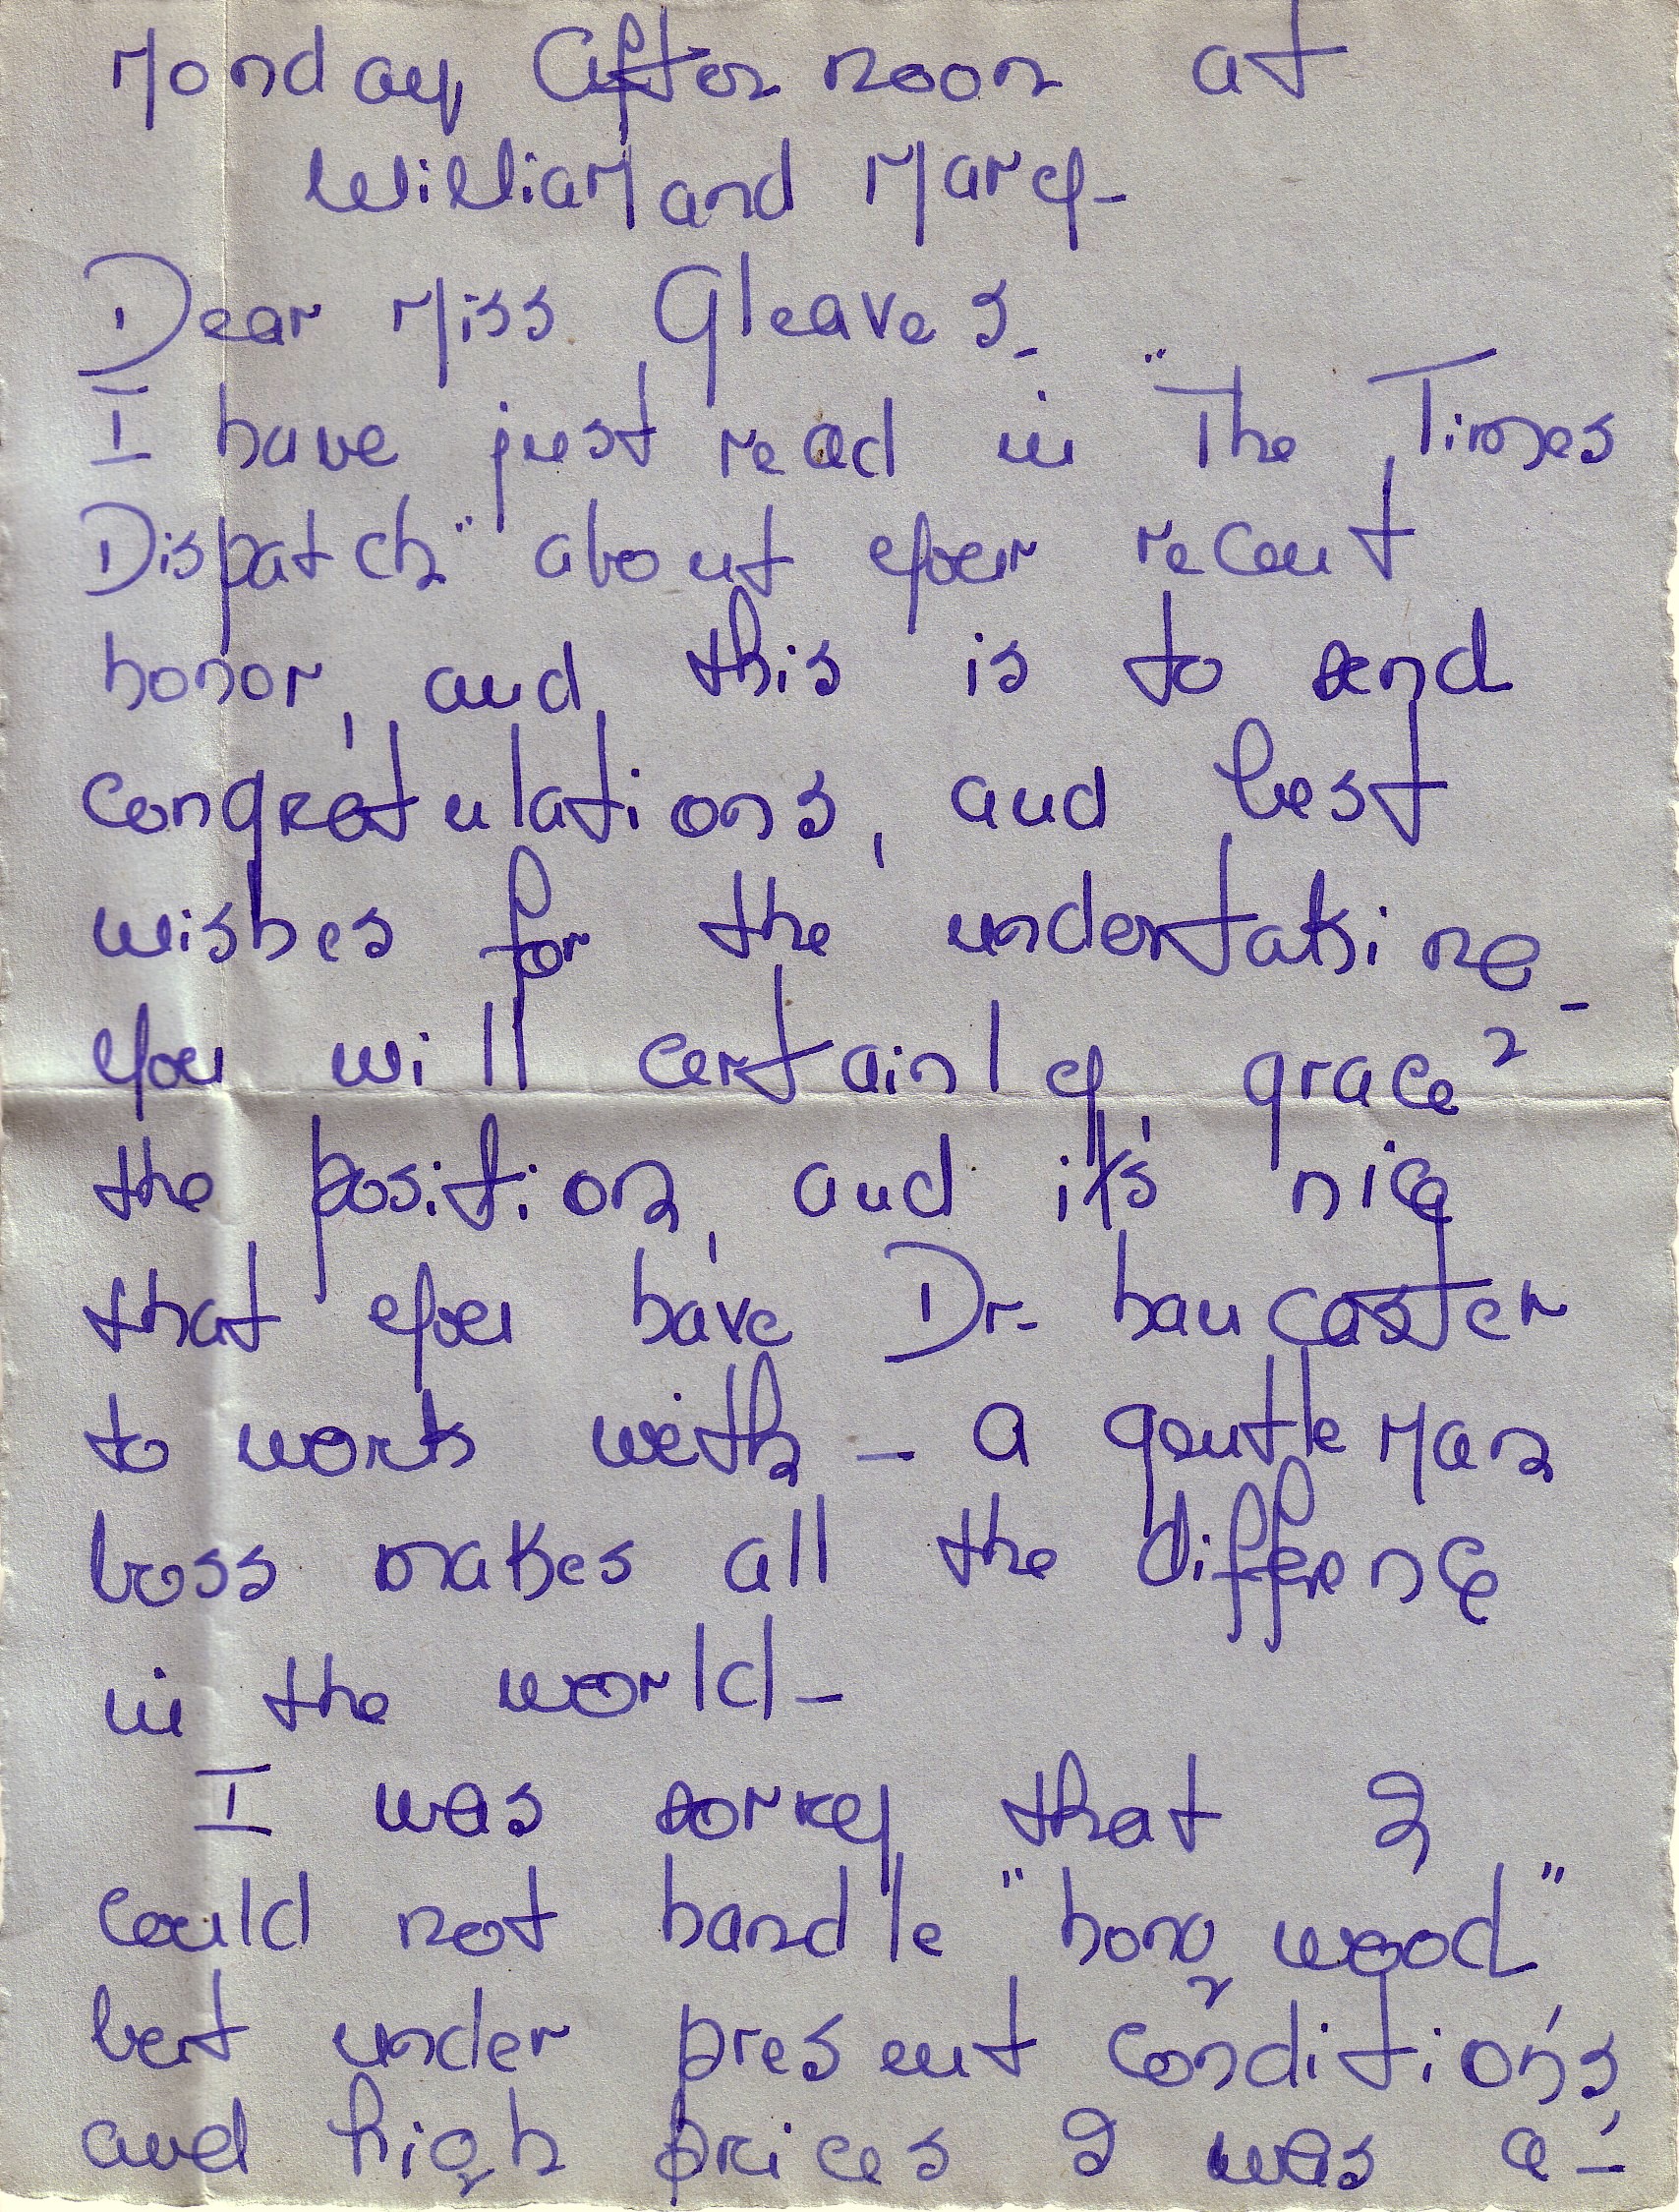 Monday afternoon at
William and Mary-
Dear Miss Gleaves_
I have just read in "The Times
Dispatch" about your recent
honor, and this is to send
congratulations, and best
wishes for the undertaking_
You will certainly grace
the position, and it's nice
that you have Dr. Lancaster
to work with - a gentleman
boss makes all the difference
in the world -
I was sorry that I
could not handle "Longwood"
but under present conditions
and high prices I was a-